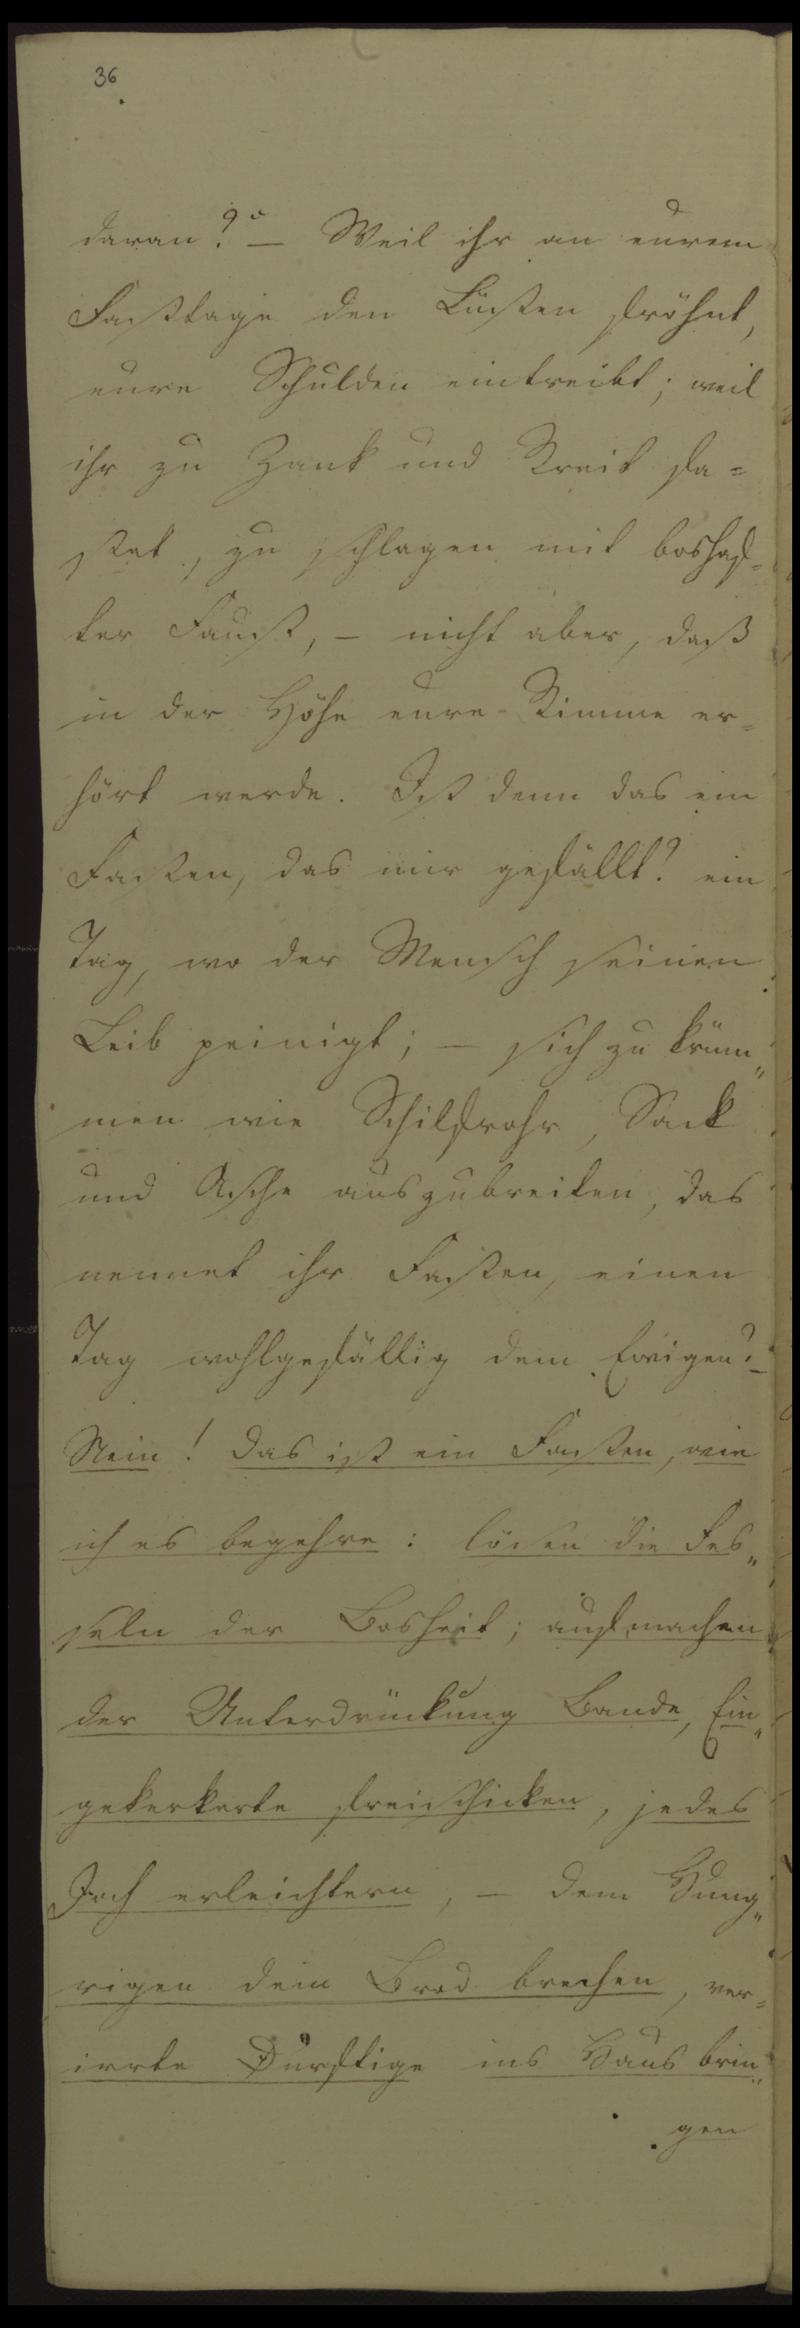 36
daran?“ — Weil ihr an eurem
Fasttage den Lüsten fröhnt,
eure Schulden eintreibt; weil
ihr zu Zank und Streit fa=
stet, zu schlagen mit boshaf=
ter Faust, — nicht aber, daß
in der Höhe eure Stimme er=
hört werde. Ist denn das ein
Fasten, das mir gefällt? ein
Tag, wo der Mensch seinen
Leib peinigt; — sich zu krüm„
men wie Schilfrohr, Sack
und Asche auszubreiten, das
nennet ihr Fasten, einen
Tag wohlgefällig dem Ewigen? —
Nein! das ist ein Fasten, wie
ich es begehre: lösen die Fes„
seln der Bosheit; aufmachen
der Unterdrückung Bande, Ein„
gekerkerte freischicken, jedes
Joch erleichtern, — dem Hung„
rigen dein Brod brechen, ver=
irrte Dürftige ins Haus brin„
gen